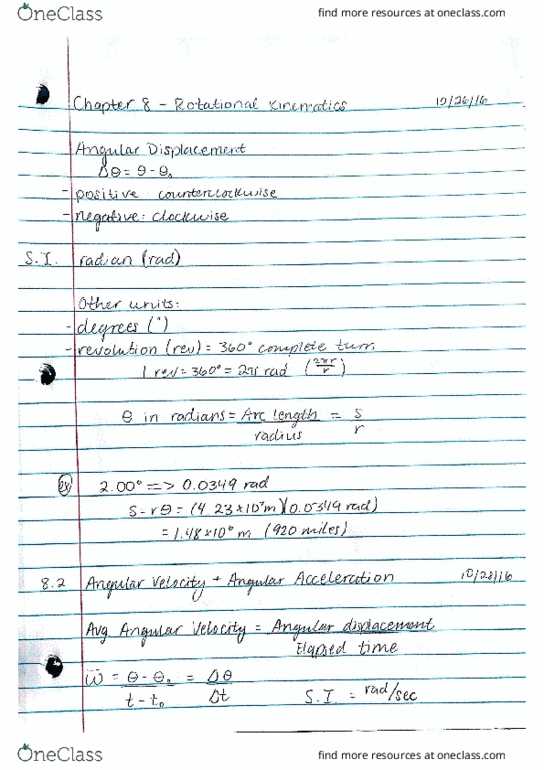 OneClass
find more resources at oneclass.com
Chapter 8 - Rotational Kinematics 10/26/16
Angular Displacement
Δθ = θ - θ₀
- positive counterclockwise
- negative: clockwise
S.I. radian (rad)
Other units:
- degrees (°)
- revolution (rev) = 360° complete turn
1 rev = 360° = 2π rad (2πr/r)
θ in radians = Arc length / radius = s/r
ex 2.00° => 0.0349 rad
s = rθ = (4.23 x 10⁷ m)(0.0349 rad)
= 1.48 x 10⁶ m (920 miles)
8.2 Angular Velocity + Angular Acceleration 10/28/16
Avg Angular Velocity = Angular displacement / Elapsed time
ω̄ = θ - θ₀ / t - t₀ = Δθ / Δt S.I. = rad/sec
OneClass
find more resources at oneclass.com